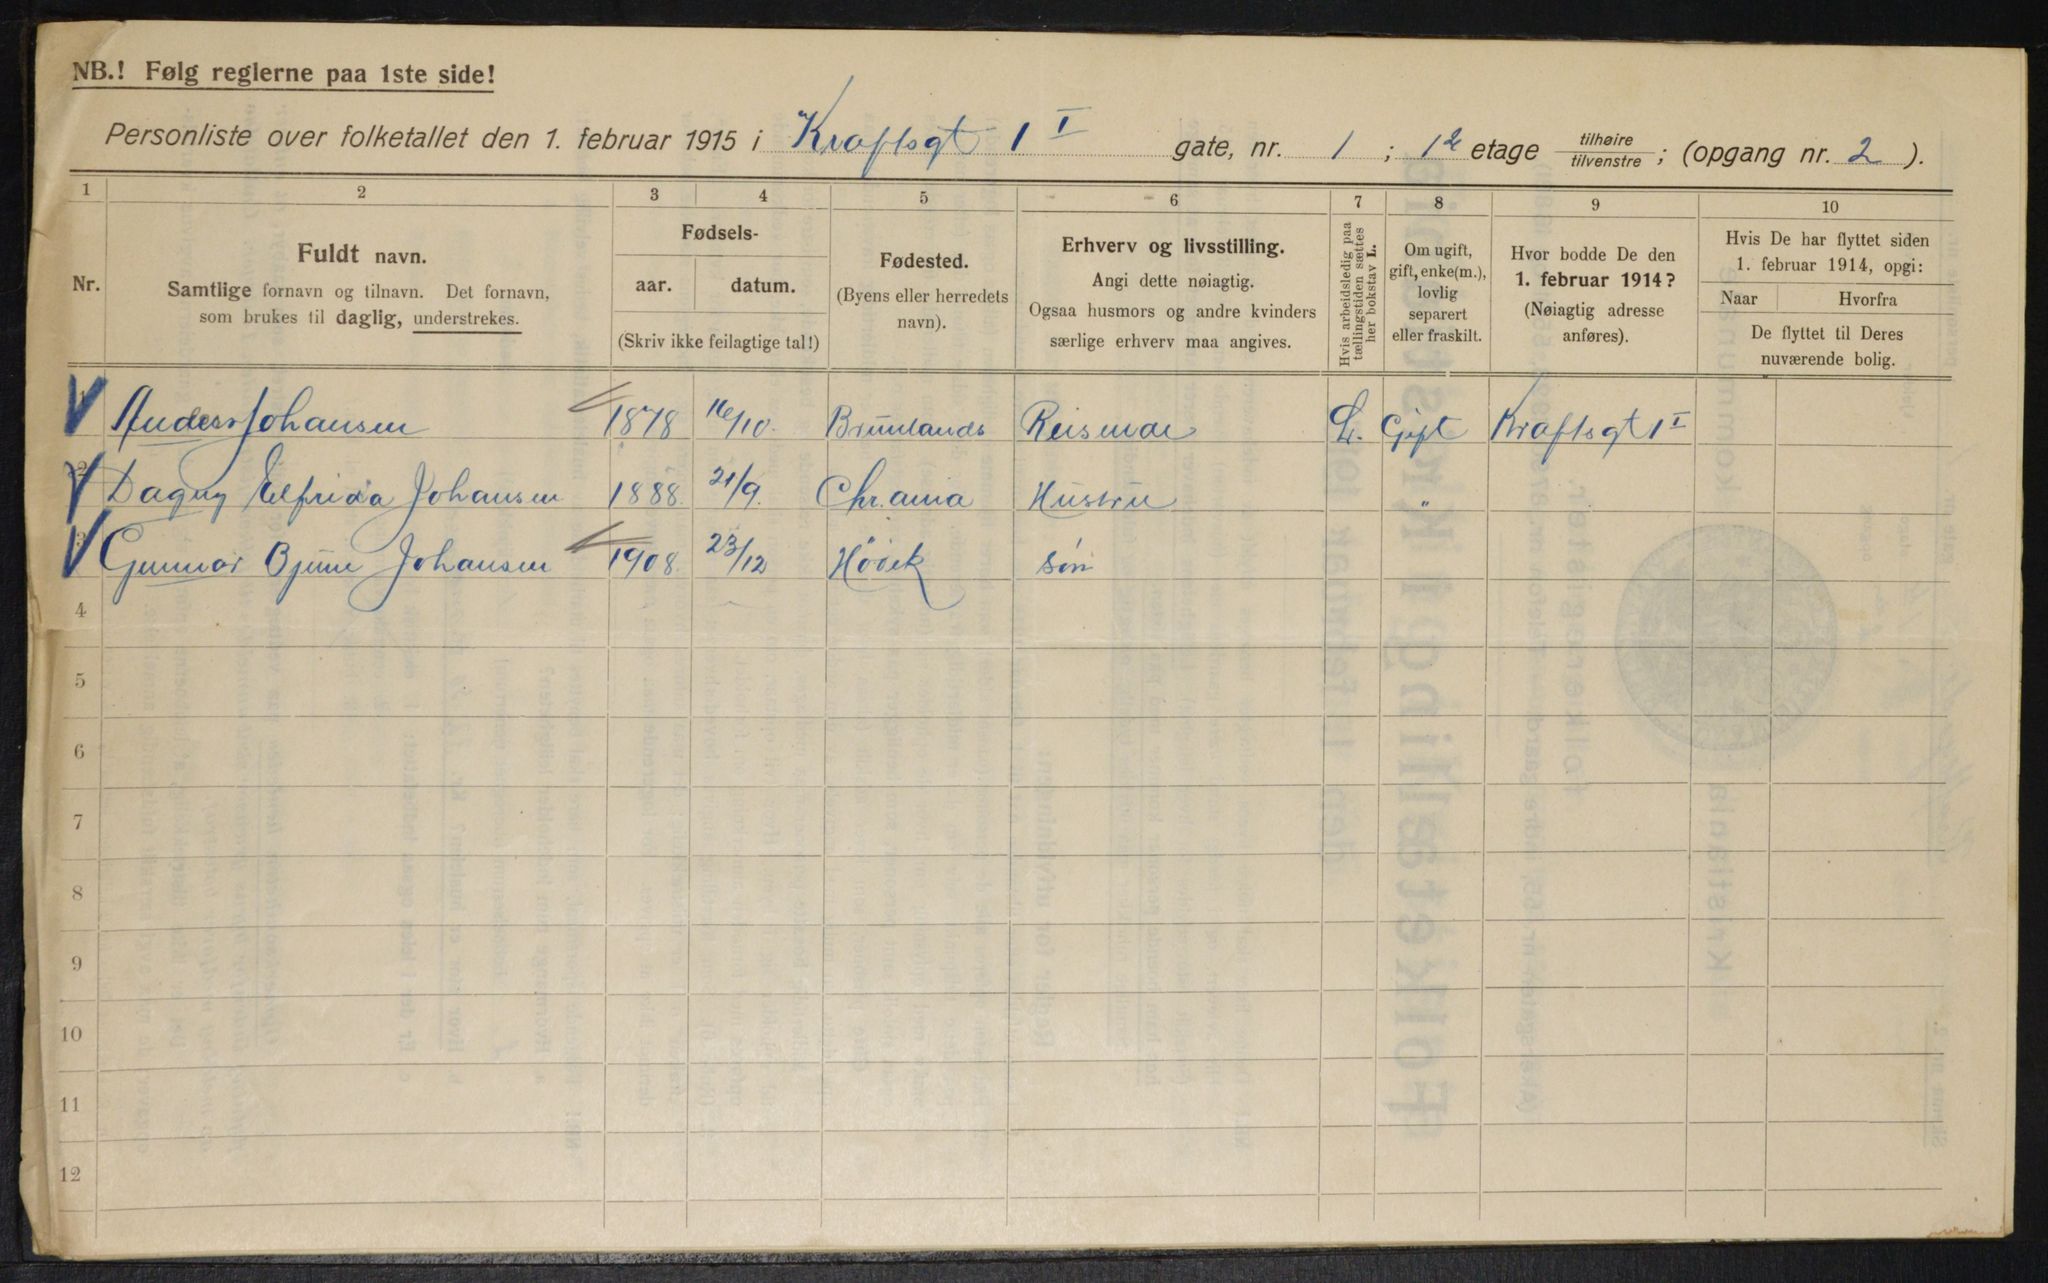 NB.! Følg reglerne paa 1ste side!
Personliste over folketallet den 1. februar 1915 i Kraftsgt 1 I gate, nr. 1 ; 1ste etage tilhøire/tilvenstre ; (opgang nr. 2 ).
1 2 3 4 5 6 7 8 9 10
Nr.
Fuldt navn.
Samtlige fornavn og tilnavn. Det fornavn,
som brukes til daglig, understrekes.
Fødsels-
aar. datum.
(Skriv ikke feilagtige tal!)
Fødested.
(Byens eller herredets
navn).
Erhverv og livsstilling.
Angi dette nøiagtig.
Ogsaa husmors og andre kvinders
særlige erhverv maa angives.
Hvis arbeidsledig paa
tællingstiden sættes
her bokstav L.
Om ugift,
gift, enke(m.),
lovlig
separert
eller fraskilt.
Hvor bodde De den
1. februar 1914?
(Nøiagtig adresse
anføres).
Hvis De har flyttet siden
1. februar 1914, opgi:
Naar Hvorfra
De flyttet til Deres
nuværende bolig.
1 Anders Johansen 1878 16/10. Brunlands L. Gift Kraftsgt 1 I
2 Dagny Elfrida Johansen 1888. 21/9. Chr.ania Hustru "
3 Gunnar Bjune Johansen 1908. 23/12 Høvik søn
4
5
6
7
8
9
10
11
12